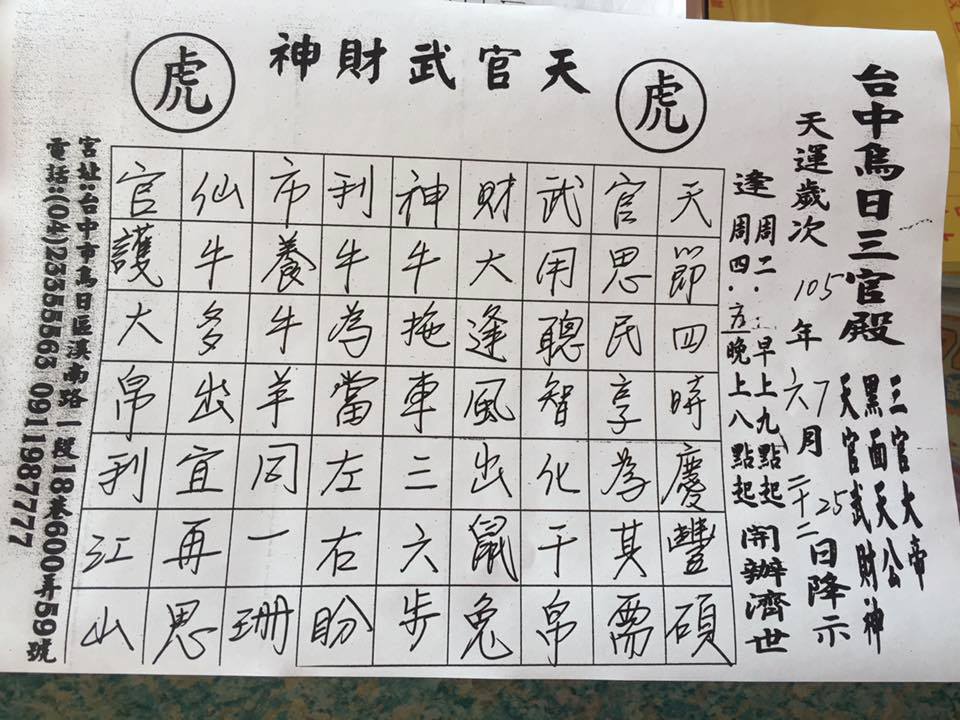 台中烏日三官殿
三官大帝
黑面天公
天官武財神
天運歲次 105年 六7月 二十二25日降示
逢周二.早上九點起
周四.六晚上八點起
開辦濟世
虎 天官武財神 虎
天節四時慶豐碩
官思民享為其需
武用聰智化干帛
財大逢風出鼠兔
神牛拖車三六步
利牛為當左右盼
市養牛羊同一珊
仙牛多出宜再思
官護大帛利江山
宮址:台中市烏日區溪南路一段18巷600弄59號
電話:(04)23355563 0911987777